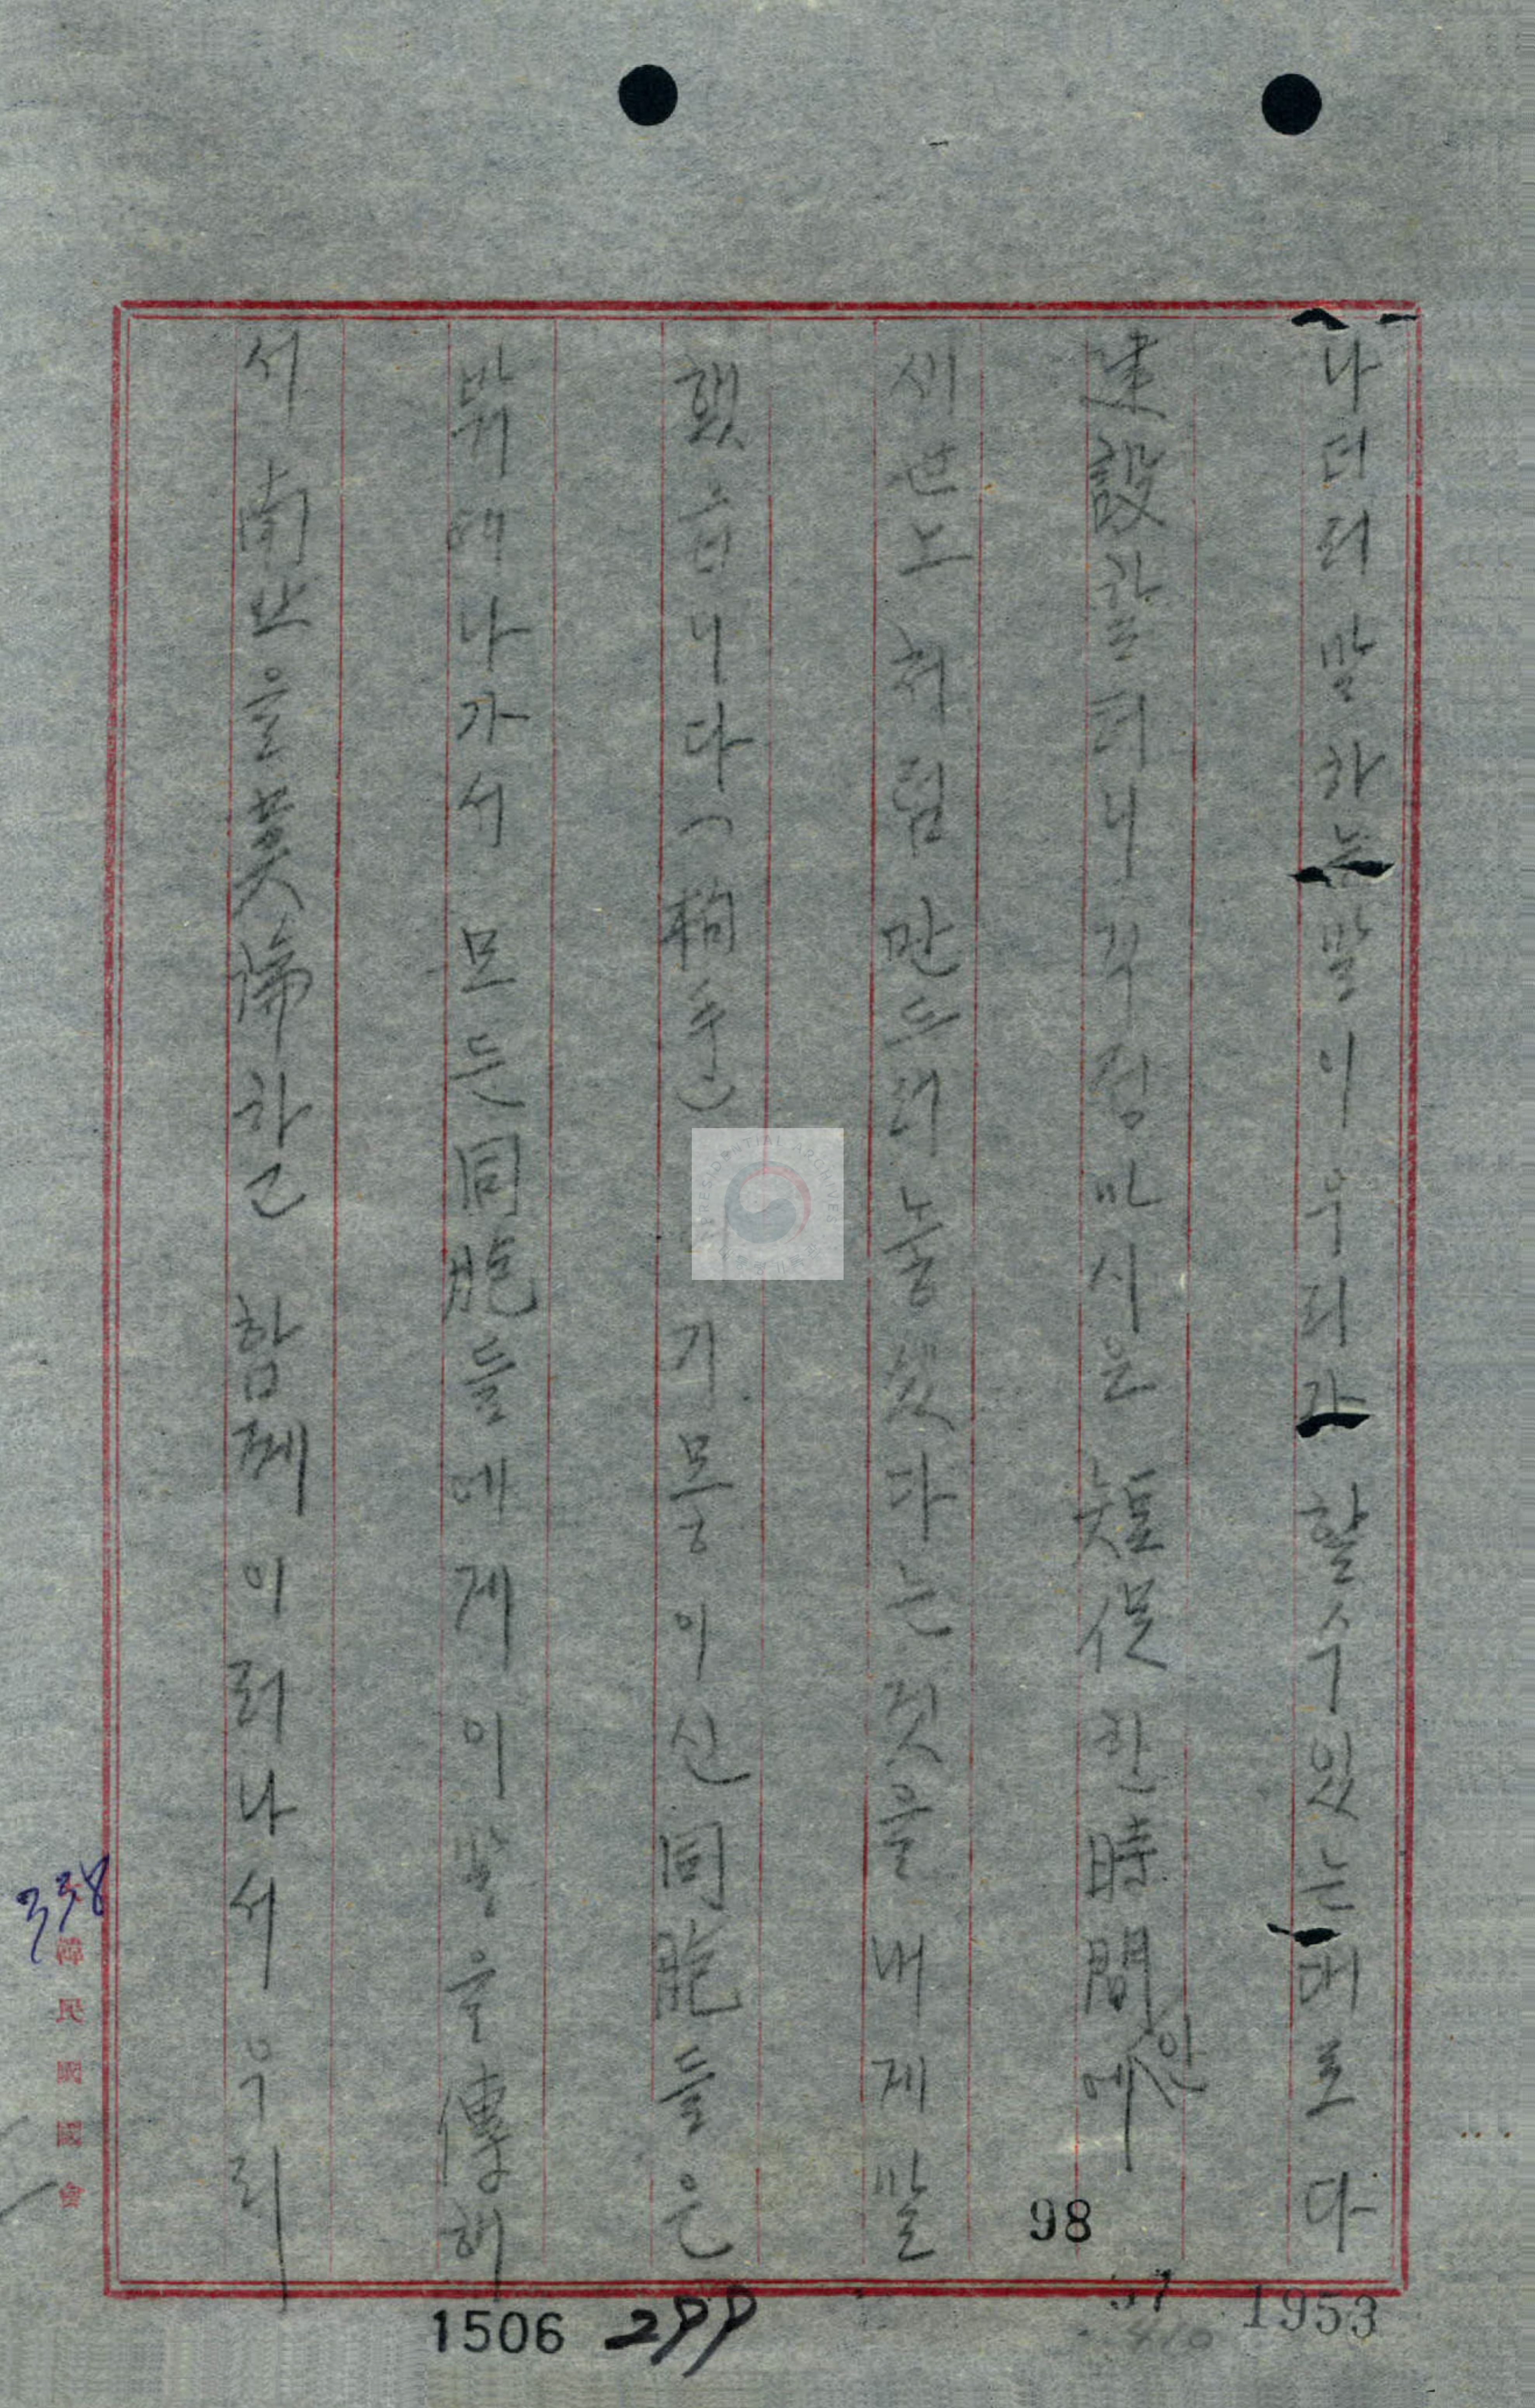 나더러 말하는 말이 우리가 할 수 있는 대로 다
建設할터니 꾸담마시은 短促한 時間안에
새 도처럼 만드러 놓겠다는 것을 내게 말
했습니다(拍手) 기 모릉이신 同胞들은
밖에 나가서 모든 同胞들에게 이 말을 傳해
서 南北을 莫論하고 함께 이러나서 우리
98
1953
1506
299
338
韓民國國會